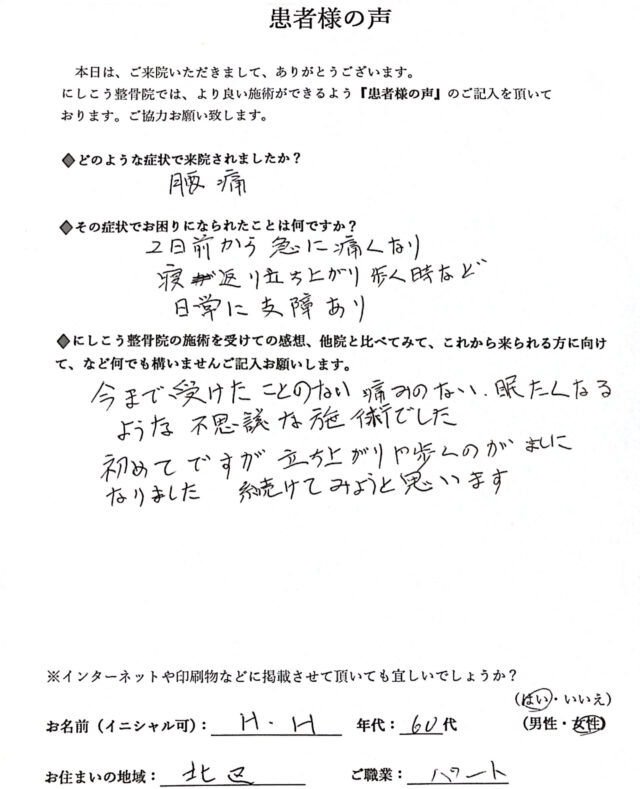 患者様の声
本日は、ご来院いただきまして、ありがとうございます。
にしこう整骨院では、より良い施術ができるよう『患者様の声』のご記入を頂いて
おります。ご協力お願い致します。
◆どのような症状で来院されましたか？
腰痛
◆その症状でお困りになられたことは何ですか？
2日前から急に痛くなり
寝返り立ち上がり歩く時など
日常に支障あり
◆にしこう整骨院の施術を受けての感想、他院と比べてみて、これから来られる方に向け
て、など何でも構いませんご記入お願いします。
今まで受けたことのない痛みのない、眠たくなる
ような不思議な施術でした
初めてですが立ち上がりや歩くのがましに
なりました 続けてみようと思います
※インターネットや印刷物などに掲載させて頂いても宜しいでしょうか？
（はい・いいえ）
お名前（イニシャル可）：H.H 年代：60代 （男性・女性）
お住まいの地域：北区 ご職業：パート